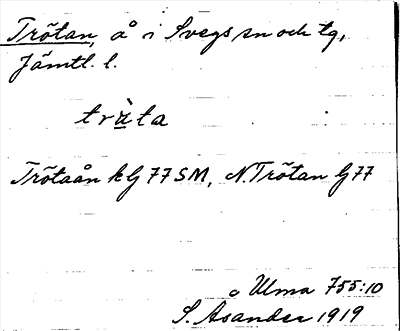 Trõtan, å i Svegs sn och tg,
Jämtl. l.
tràta
Trõtaån kbl 77 SM, N. Trõtan bl 77
Ulma 755:10
S. Åsander 1919